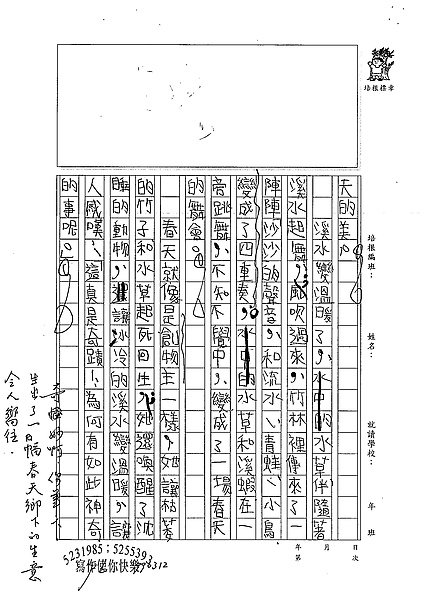 培根檔案
培根編班：
姓名：
就讀學校：
年 班
年 月 日
第 次
天的美。
溪水變溫暖了，水中的水草伴隨著
溪水起舞，風吹過來，竹林裡傳來了一
陣陣沙沙的聲音，和流水、青蛙、小鳥
變成了四重奏。水中的水草和溪蝦在一
旁跳舞，不知不覺中，變成了一場春天
的舞會。
春天就像是創物主一樣，她讓枯萎
的竹子和水草起死回生，她還喚醒了沈
睡的動物，讓冰冷的溪水變溫暖，讓
人感嘆：這真是奇蹟、為何有如此神奇
的事呢。
妳
出了一幅春天鄉下的生意
令人嚮往.
5231985；5255393
寫作 你快樂